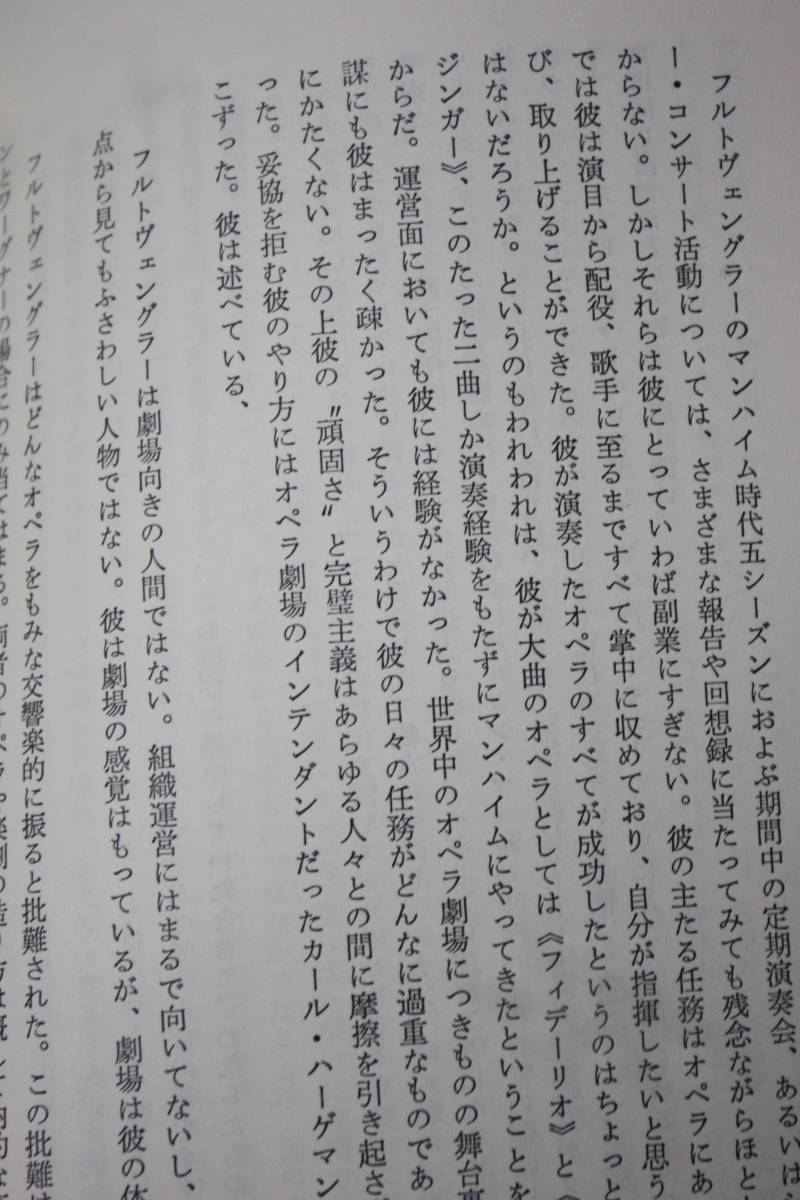 フルトヴェングラーのマンハイム時代五シーズンにおよぶ期間中の定期演奏会、あるいは
ー・コンサート活動については、さまざまな報告や回想録に当たってみても残念ながらほと
からない。しかしそれらは彼にとっていわば副業にすぎない。彼の主たる任務はオペラにあ
では彼は演目から配役、歌手に至るまですべて掌中に収めており、自分が指揮したいと思う
び、取り上げることができた。彼が演奏したオペラのすべてが成功したというのはちょっと
はないだろうか。というのもわれわれは、彼が大曲のオペラとしては《フィデーリオ》と《
ジンガー》、このたった二曲しか演奏経験をもたずにマンハイムにやってきたということを
からだ。運営面においても彼には経験がなかった。世界中のオペラ劇場につきものの舞台裏
謀にも彼はまったく疎かった。そういうわけで彼の日々の任務がどんなに過重なものであ
にかたくない。その上彼の〝頑固さ〟と完璧主義はあらゆる人々との間に摩擦を引き起さ
った。妥協を拒む彼のやり方にはオペラ劇場のインテンダントだったカール・ハーゲマン
こずった。彼は述べている、
フルトヴェングラーは劇場向きの人間ではない。組織運営にはまるで向いてないし、
点から見てもふさわしい人物ではない。彼は劇場の感覚はもっているが、劇場は彼の体
フルトヴェングラーはどんなオペラをもみな交響楽的に振ると批難された。この批難は
ンとワーグナーの場合にのみ当てはまる。両者のオペラや楽劇の造り方は概して内的な